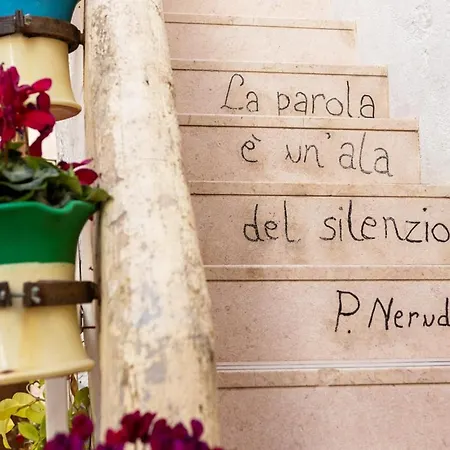 La parola
è un'ala
del silenzio
P. Nerud